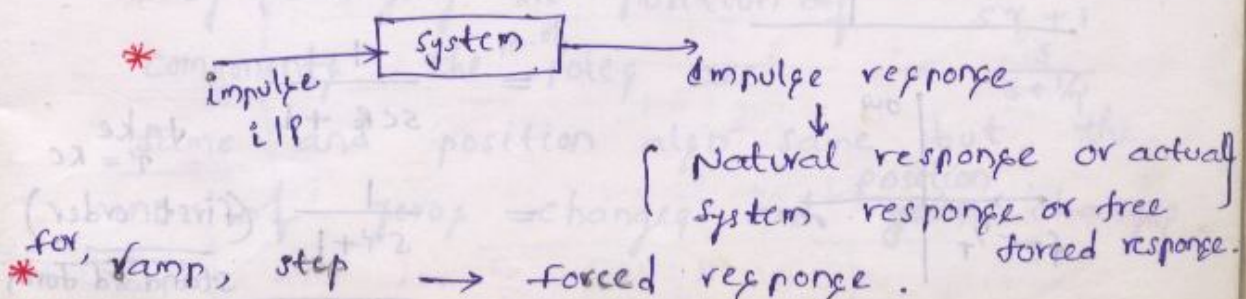 * impulse i/p → system → impulse response
↓
[Natural response or actual
system response or free
forced response.]
* for, ramp, step → forced response.